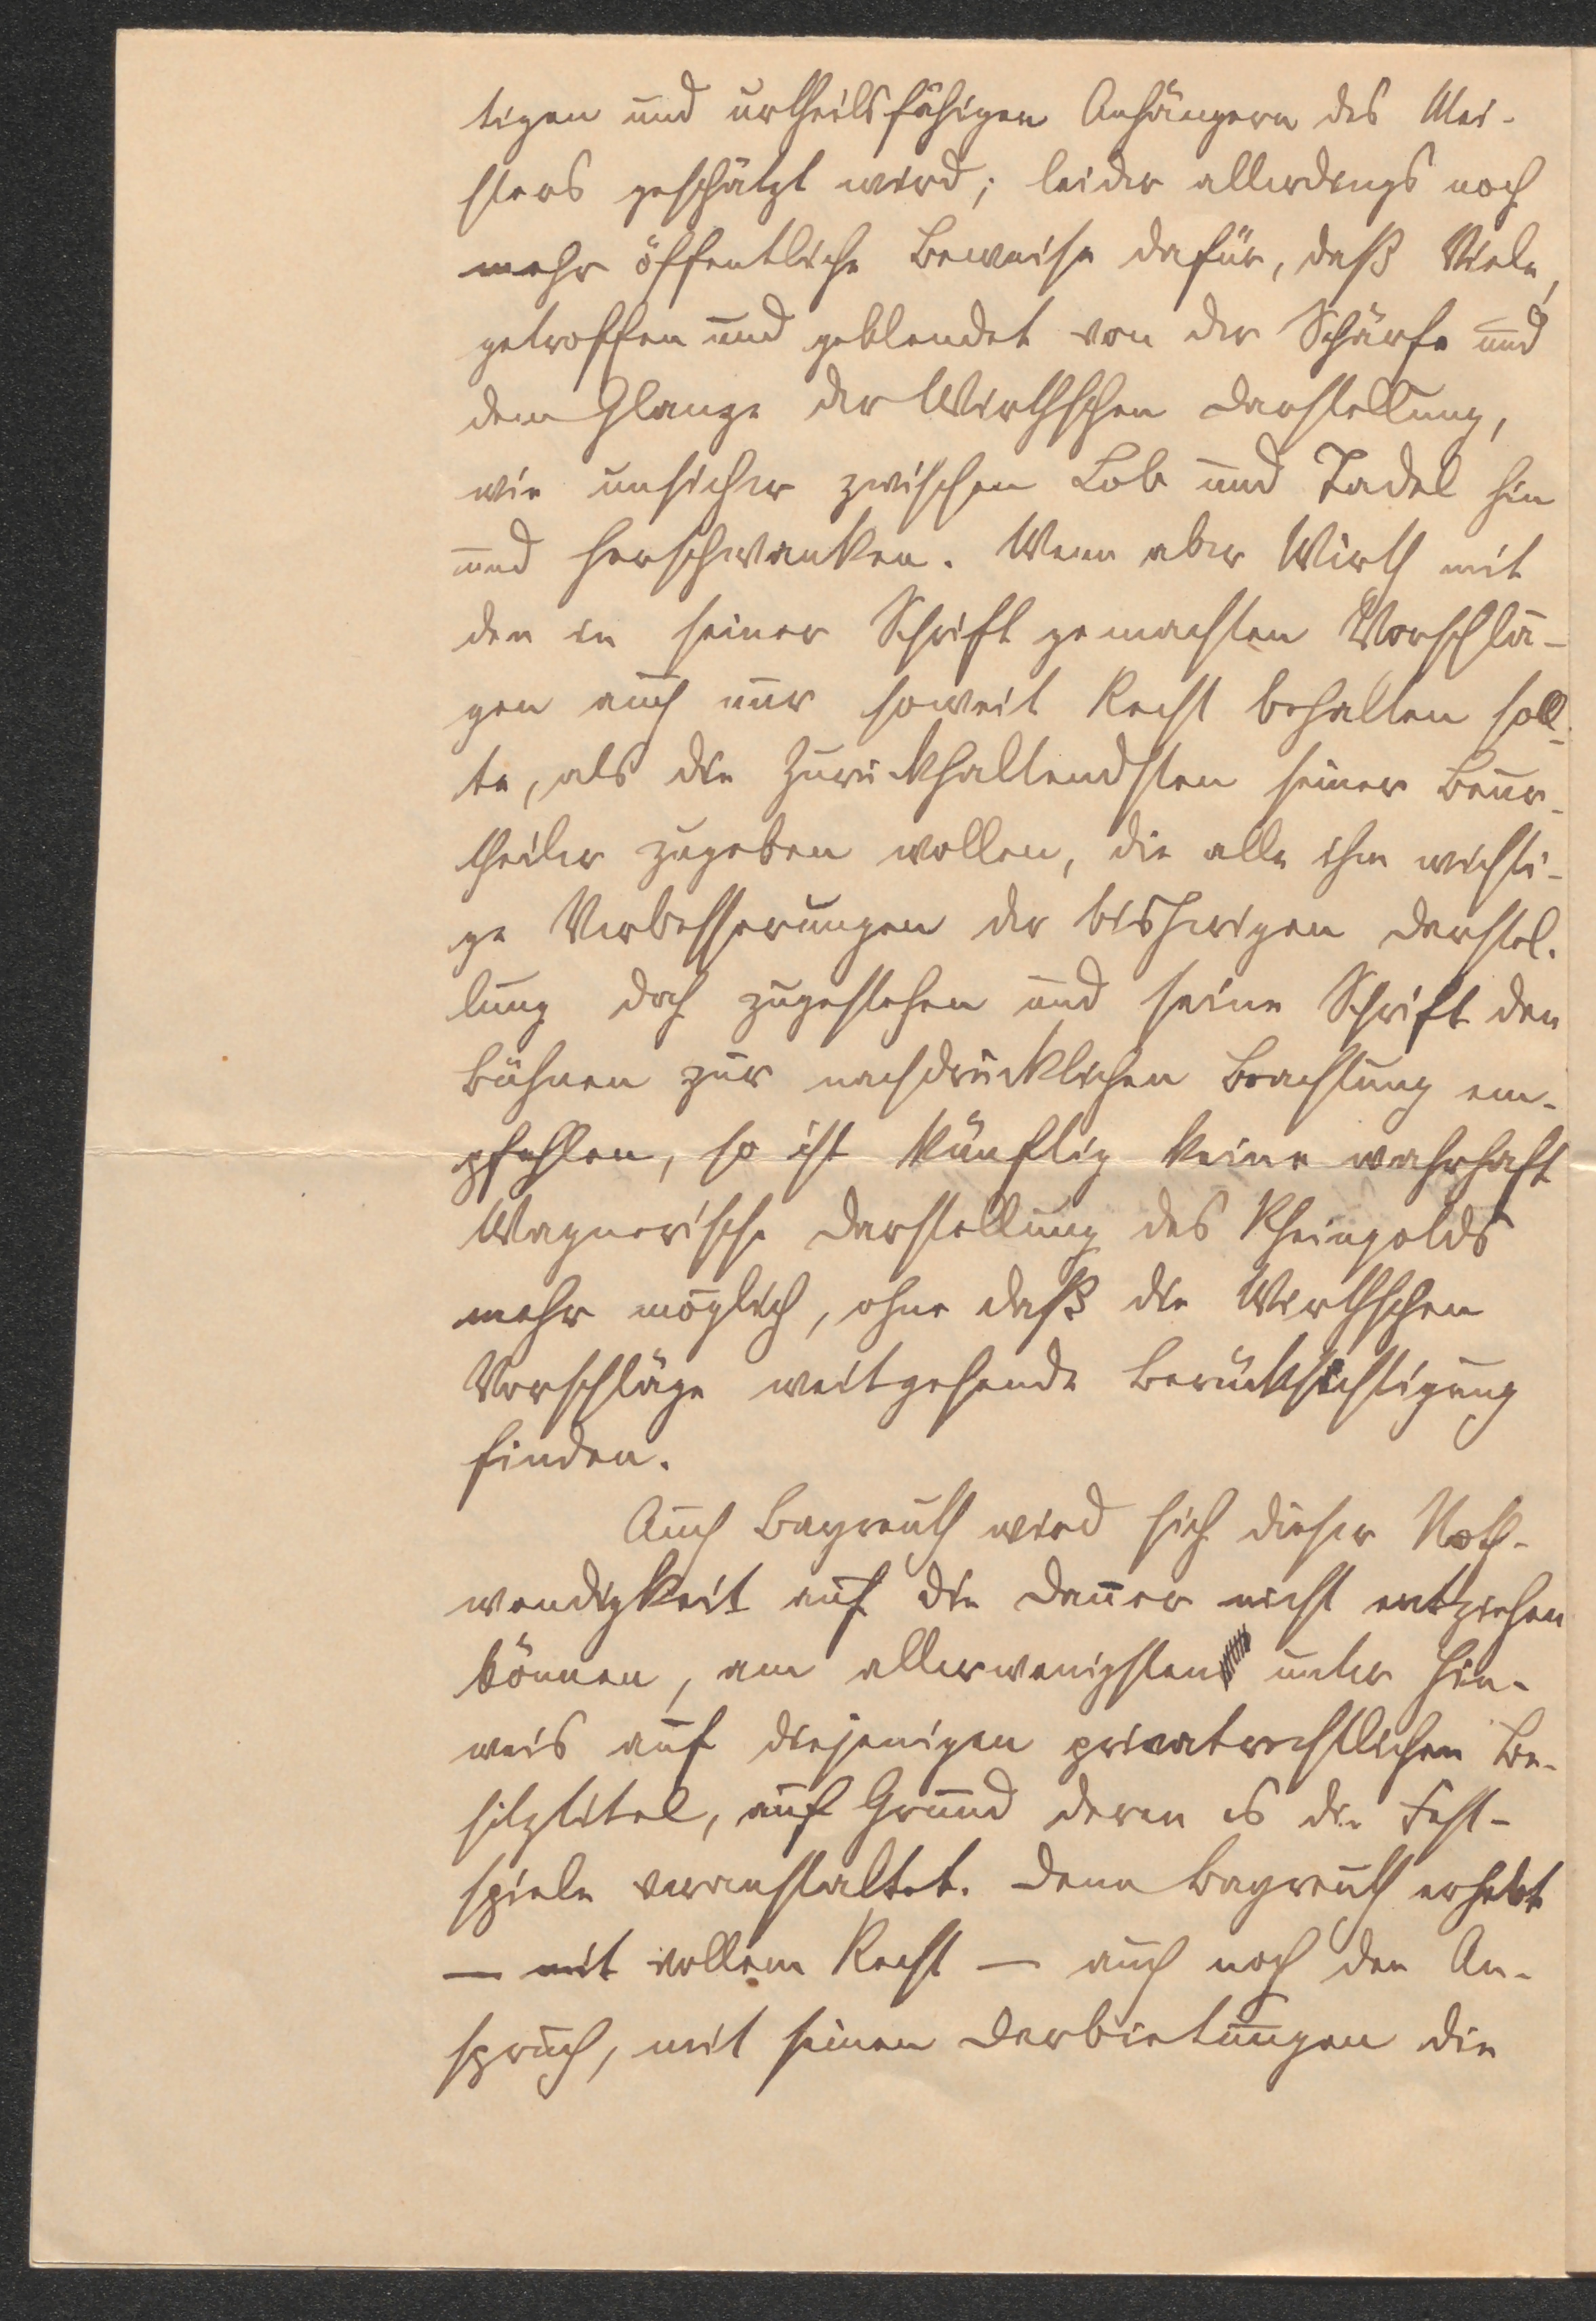 tigen und urtheilsfähigen Anhängern des Mei-
sters geschätzt wird; leider allerdings noch
mehr öffentliche Beweise dafür, daß Viele,
getroffen und geblendet von der Schärfe und
dem Glanze der Wirthschen Darstellung,
wie unsicher zwischen Lob und Tadel hin
und herschwanken. Wenn aber Wirth mit
den in seiner Schrift gemachten Vorschlä-
gen auch nur soweit Recht behalten soll-
te, als die Zurückhaltendsten seiner Beur-
theiler zugeben wollen, die alle ihm wichti-
ge Verbesserungen der bisherigen Darstel-
lung doch zugestehen und seine Schrift den
Bühnen zur nachdrücklichen Beachtung em-
pfehlen, so ist künftig keine wahrhaft
Wagnerische Darstellung des Rheingolds
mehr möglich, ohne daß die Wirthschen
Vorschläge weitgehende Berücksichtigung
finden.
Auch Bayreuth wird sich dieser Noth-
wendigkeit auf die Dauer nicht entziehen
können, am allerwenigsten unter Hin-
weis auf diejenigen privatrechtlichen Be-
sitztitel, auf Grund deren es die Fest-
spiele veranstaltet. Denn Bayreuth erhebt
— mit vollem Recht — auch noch den An-
spruch, mit seinen Darbietungen die